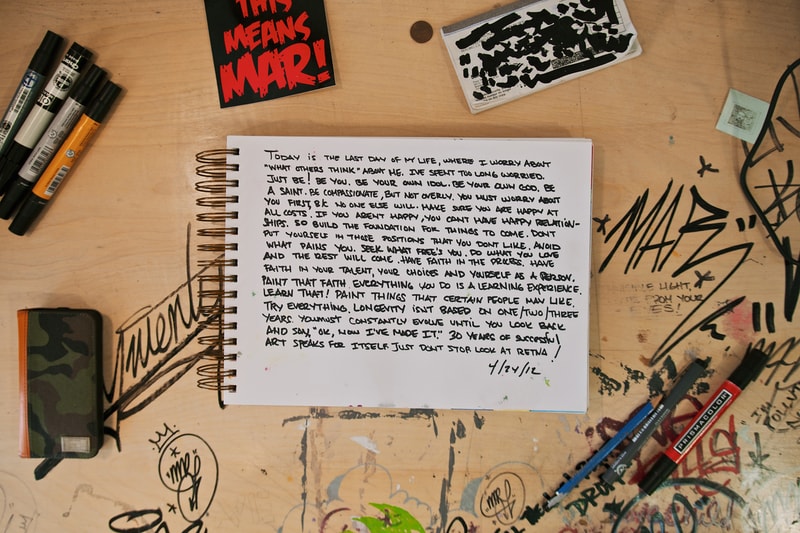 THIS
MEANS
MAR!
TODAY IS THE LAST DAY OF MY LIFE, WHERE I WORRY ABOUT
"WHAT OTHERS THINK" ABOUT ME. I'VE SPENT TOO LONG WORRIED.
JUST BE! BE YOU. BE YOUR OWN IDOL. BE YOUR OWN GOD. BE
A SAINT. BE COMPASSIONATE, BUT NOT OVERLY. YOU MUST WORRY ABOUT
YOU FIRST, B/C NO ONE ELSE WILL. MAKE SURE YOU ARE HAPPY AT
ALL COSTS. IF YOU AREN'T HAPPY, YOU CAN'T HAVE HAPPY RELATION-
SHIPS. SO BUILD THE FOUNDATION FOR THINGS TO COME. DON'T
PUT YOURSELF IN THOSE POSITIONS THAT YOU DON'T LIKE. AVOID
WHAT PAINS YOU. SEEK WHAT FREE'S YOU. DO WHAT YOU LOVE
AND THE REST WILL COME. HAVE FAITH IN THE PROCESS. HAVE
FAITH IN YOUR TALENT, YOUR CHOICES AND YOURSELF AS A PERSON.
PAINT THAT FAITH EVERYTHING YOU DO IS A LEARNING EXPERIENCE.
LEARN THAT! PAINT THINGS THAT CERTAIN PEOPLE MAY LIKE.
TRY EVERYTHING. LONGEVITY ISN'T BASED ON ONE/TWO/THREE
YEARS. YOU MUST CONSTANTLY EVOLVE UNTIL YOU LOOK BACK
AND SAY, "OK, NOW I'VE MADE IT." 30 YEARS OF SUCCESS IN
ART SPEAKS FOR ITSELF. JUST DON'T STOP. LOOK AT RETNA!
4/24/12
MAR
LIGHT,
FROM YOUR
EYES!
PRISMACOLOR